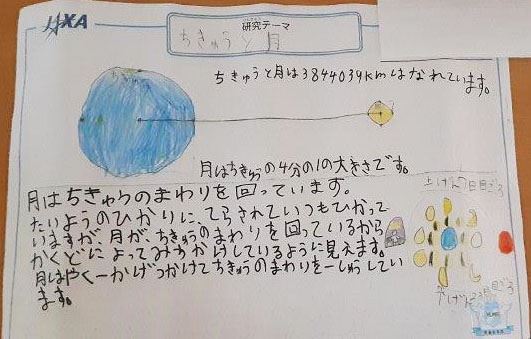 JAXA
研究テーマ
ちきゅうと月
ちきゅうと月は384403 9kmはなれています。
月はちきゅうの4分の1の大きさです。
月はちきゅうのまわりを回っています。
たいようのひかりに、てらされていつもひかって
いますが、月が、ちきゅうのまわりを回っているから
かくどによってみちかけしているように見えます。
月はやく一かげつかけてちきゅうのまわりを一しゅうしてい
ます。
上げん7日目ごろ
下げん23日目ごろ